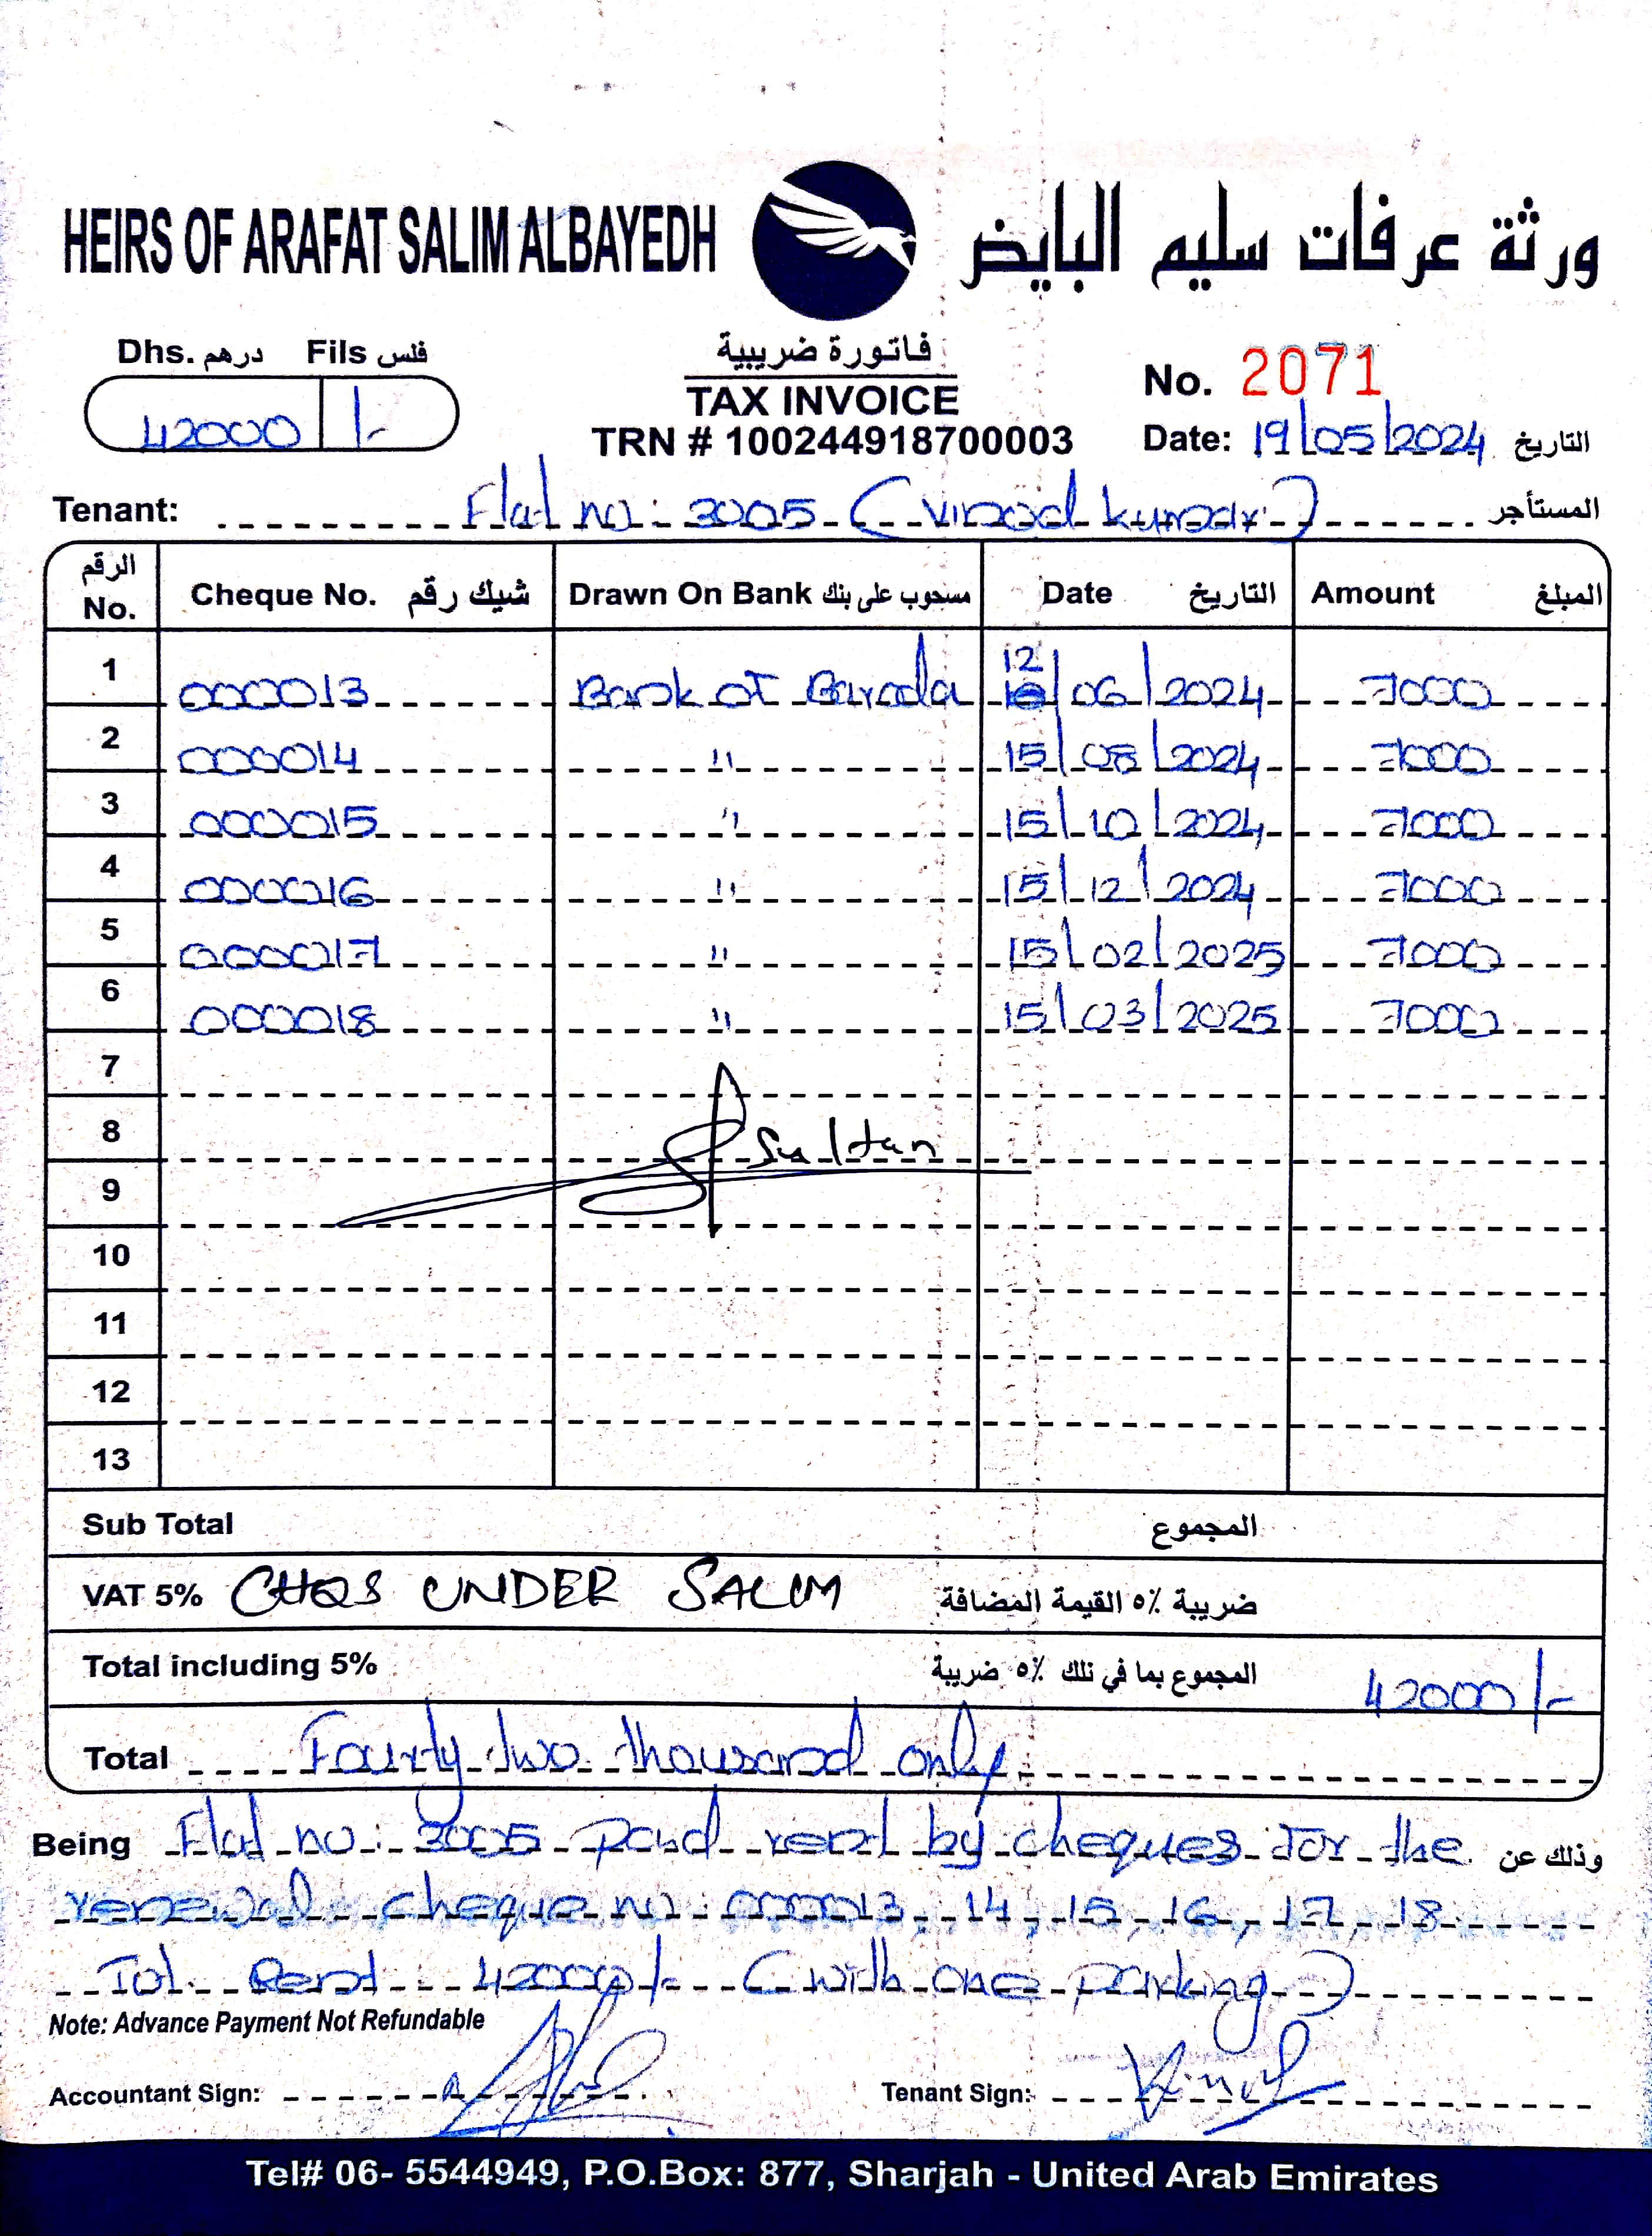 HEIRS OF ARAFAT SALIM ALBAYEDH ورثة عرفات سليم البايض
Dhs. درهم Fils فلس
42000 /-
فاتورة ضريبية
TAX INVOICE
TRN # 100244918700003
No. 2071
Date: 19/05/2024 التاريخ
Tenant: Flat no: 3005 (Vinod kumar) المستأجر
الرقم No. Cheque No. شيك رقم Drawn On Bank مسحوب على بنك Date التاريخ Amount المبلغ
1 000013 Bank of Baroda 12/06/2024 7000
2 000014 " 15/08/2024 7000
3 000015 " 15/10/2024 7000
4 000016 " 15/12/2024 7000
5 000017 " 15/02/2025 7000
6 000018 " 15/03/2025 7000
7
8 Sultan
9
10
11
12
13
Sub Total المجموع
VAT 5% CHQS UNDER SALIM ضريبة ٥٪ القيمة المضافة
Total including 5% المجموع بما في ذلك ٥٪ ضريبة 42000/-
Total Fourty two thousand only
Being Flat no: 3005 paid rent by cheques for the وذلك عن
renewal cheque no: 000013, 14, 15, 16, 17, 18
Tot. Rent 42000/- (with one parking)
Note: Advance Payment Not Refundable
Accountant Sign: Tenant Sign:
Tel# 06- 5544949, P.O.Box: 877, Sharjah - United Arab Emirates